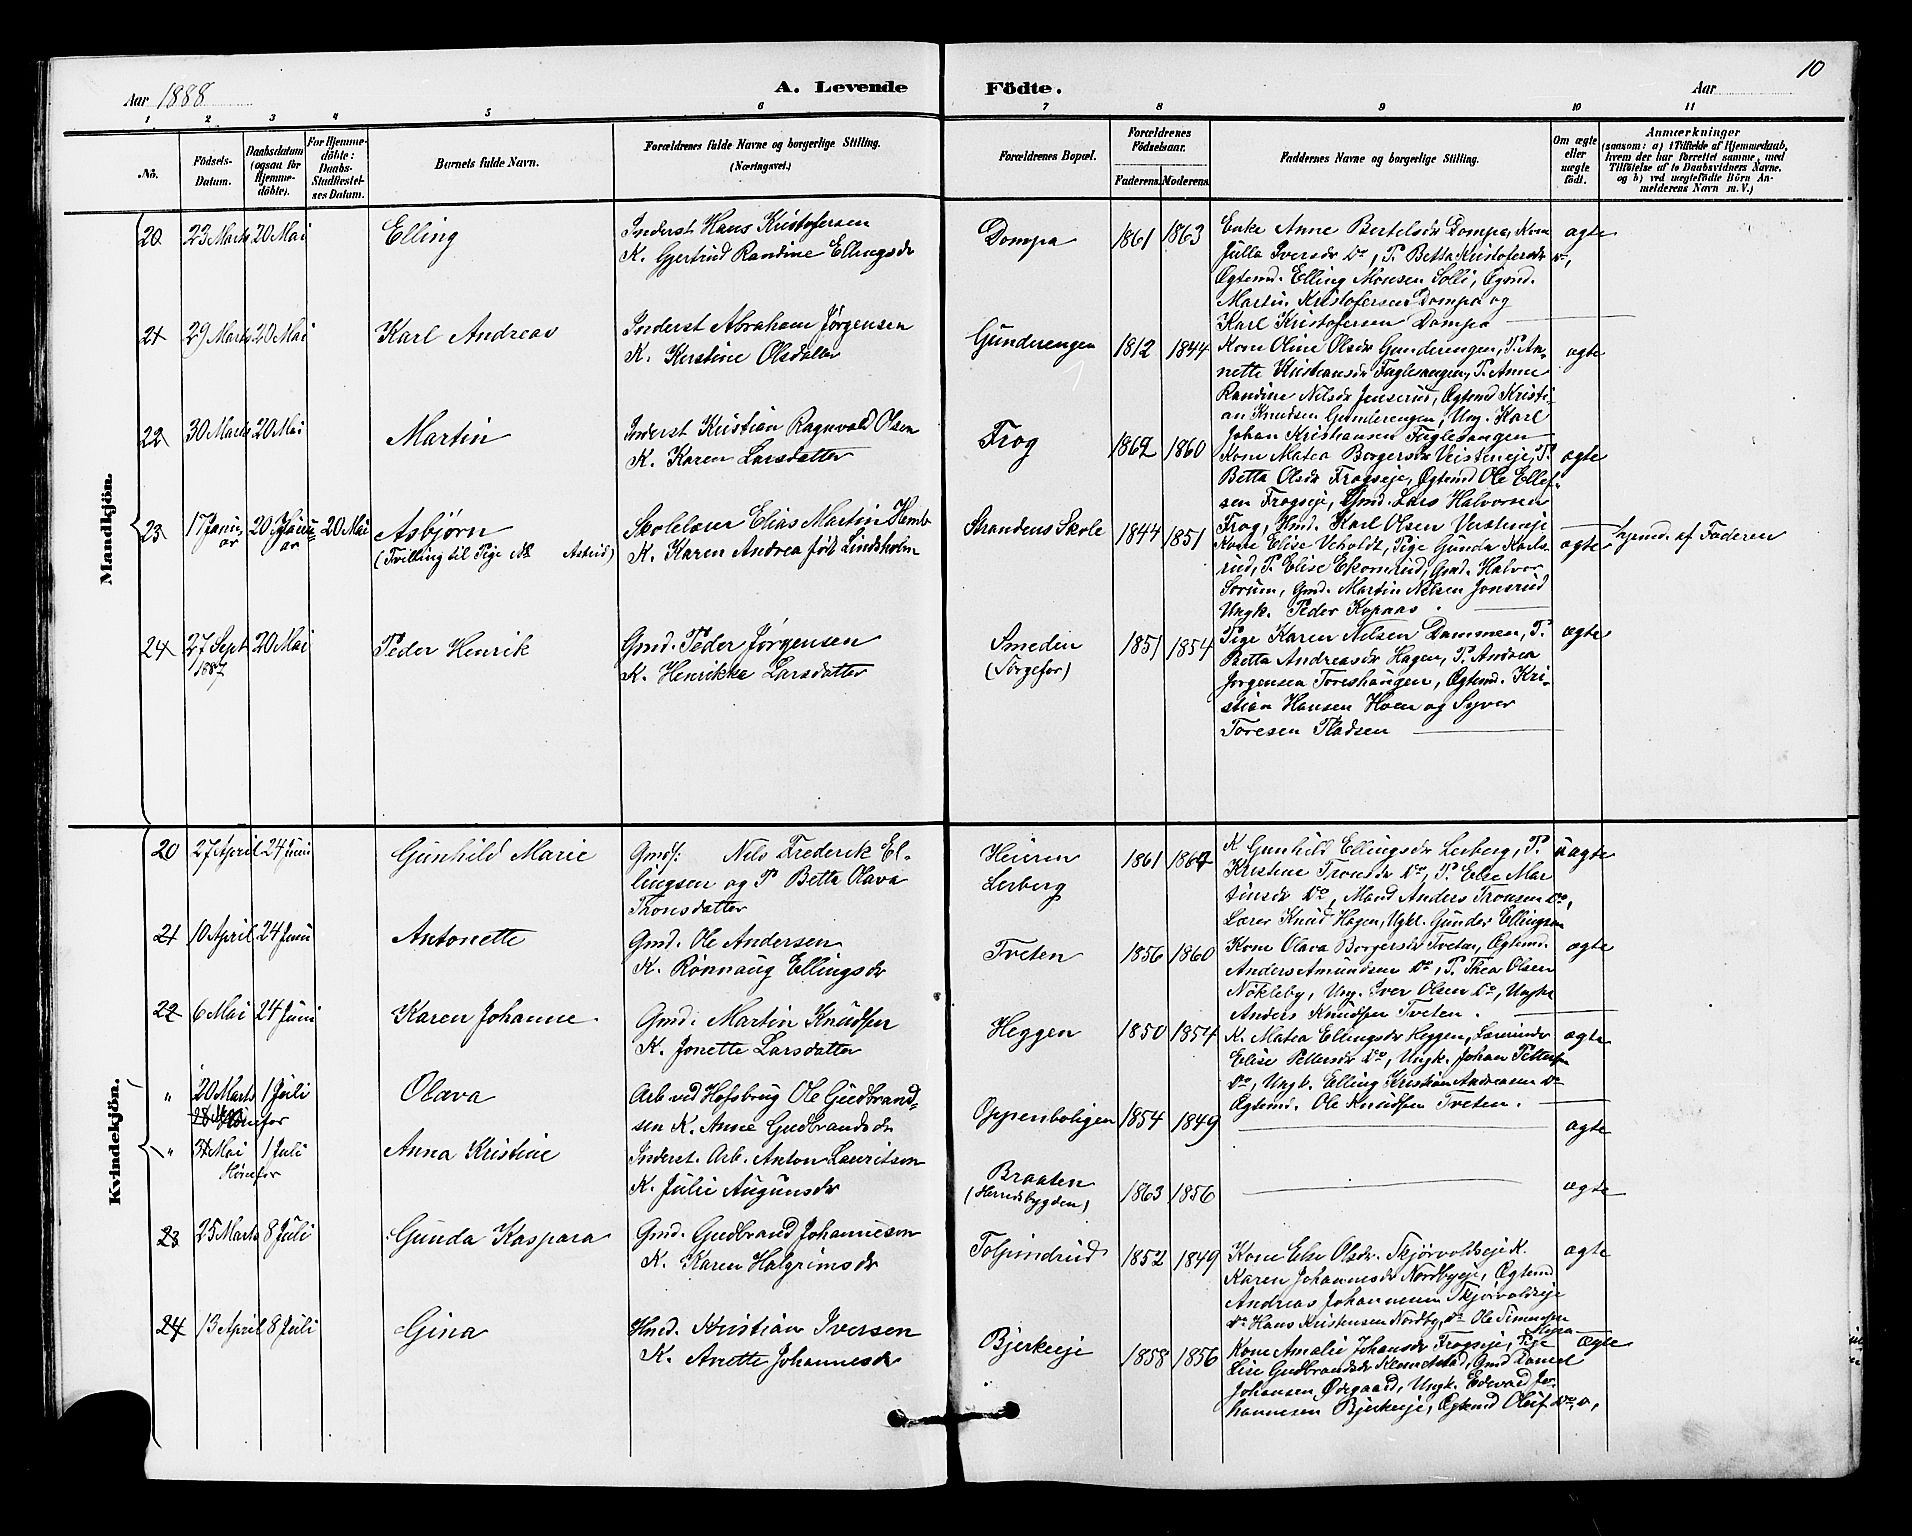 10
Aar 1888
A. Levende
Födte.
Aar
1 2 3 4 5 6 7 8 9 10 11
No.
Födsels-Datum.
Daabsdatum (ogsaa for Hjemme-döbte).
For Hjemme-döbte: Daabs-Stadfæstel-ses Datum.
Barnets fulde Navn.
Forældrenes fulde Navne og borgerlige Stilling.
(Næringsvei.)
Forældrenes Bopæl.
Forældrenes Födselsaar.
Faderens. Moderens.
Faddernes Navne og borgerlige Stilling.
Om ægte eller uægte födt.
Anmærkninger
(saasom: a) i Tilfælde af Hjemmedaab, hvem der har forrettet samme, med Tilföielse af to Daabsvidners Navne, og b) ved uægtefödte Börn An-melderens Navn m. V.)
Mandkjön.
20 23 Marts 20 Mai Elling
Inderst Hans Kristofersen
K. Gjertrud Randine Ellingsdr
Dompa 1861 1863
Enke Anne Bertelsdr Dompa, Kone
Julla Iversdr Do, P. Betta Kristofersdr Do,
Ægtemd. Elling Monsen Solli, Gmd.
Martin Kristofersen Dompa og
Karl Kristofersen Dompa
ægte
21 29 Marts 20 Mai Karl Andreas
Inderst Abraham Jørgensen
K. Kirstine Olsdatter
Gunderengen 1812 1844
Kone Oline Olsdr Gunderengen, P. An-
nette Kristiansdr Fuglesangen, P. Anne
Randine Nilsdr Jonsrud, Ægtemd Kristi-
an Knudsen Gunderengen, Ung. Karl
Johan Kristiansen Fuglesangen
ægte
22 30 Marts 20 Mai Martin
Inderst Kristian Ragnvald Olsen
K. Karen Larsdatter
Frog 1862 1860
Kone Matea Borgersdr Veistereje, P.
Betta Olsdr Frogseje, Ægtemd Ole Ellef-
sen Frogseje, Gmd. Lars Halvorsen
Frog, Hmd. Karl Olsen Veistereje
ægte
23 17 Janu-ar 20 Janu-ar 20 Mai Asbjørn
(Tvilling til Pige No Astrid)
Skolelærer Elias Martin Hamb
K. Karen Andrea født Lindsholm
Strandens Skole 1844 1851
Kone Elise Veholdt, Pige Gunda Karls-
rud, P. Elise Ekornrud, Gmd. Halvor
Sørum, Gmd. Martin Nilsen Jonsrud
Ungk. Peder Kopnaas
ægte
hjemd. af Faderen
24 27 Sept 1887 20 Mai Peder Henrik
Gmd. Peder Jørgensen
K. Henrikke Larsdatter
Smedien
(Torgefor)
1851 1854
Pige Karen Nilsen Dammen, P.
Betta Andreasdr Hagen, P. Andrea
Jørgensen Toreshaugen, Ægtemd. Kri-
stian Hansen Hoen og Syver
Toresen Pladsen
ægte
Kvindekjön.
20 27 April 24 Juni Gunhild Marie
Gmdf: Nils Frederik El-
lingsen og P Betta Olava
Tronsdatter
Heieren
Lerberg
1861 1867
K Gunhild Ellingsdr Lerberg, P.
Kristine Tronsdr Do, P. Else Mar
tinsdr Do, Mand Anders Tronsen Do,
Lærer Knud Hagen, Ugkl. Gunder Ellingsen
uægte
21 10 April 24 Juni Antonette
Gmd. Ole Andersen
K. Rønnaug Ellingsdr
Tveten 1856 1860
Kone Olava Borgersdr Tveten, Ægtemd.
Anders Amundsen Do, P. Thea Olsen
Nökleby, Ung. Iver Olsen Do, Ungk.
Anders Knudsen Tveten.
ægte
22 6 Mai 24 Juni Karen Johanne
Gmd. Martin Knudsen
K. Jonette Larsdatter
Heggen 1850 1854
K. Matea Ellingsdr Heggen, Lærerinde
Elise Pettersdr Do, Ungk. Johan Pettersen
Do, Ungk. Elling Kristian Andreasen Do
Ægtemd. Ole Knudsen Tveten.
ægte
" 20 Marts 1 Juli Olava
Hønefos
Arb ved Hofsbrug Ole Gudbrand-
sen K. Anne Gudbrandsdr
Oppenboligen 1854 1849
ægte
" Mai 1 Juli Anna Kristine
Hønefos
Inderst. Arb. Anton Lauritsen
K. Julie Augunsdr
Braaten
(Harredsbygden)
1863 1856
ægte
23 25 Marts 8 Juli Gunda Kaspara
Gmd. Gudbrand Johannesen
K. Karen Halgrimsdr
Tolpindrud 1852 1849
Kone Else Olsdr. Skjørvoldseje K.
Karen Johannesdr Nordbyeje, Ægtemd
Andreas Johannesen Skjørvoldseje
Do Hans Kristensen Nordby, Do Ole Simensen
ægte
24 13 April 8 Juli Gina
Hmd. Kristian Iversen
K. Anette Johannesdr
Bjerkeeje 1858 1856
Kone Amalie Johansdr Frogseje, Pige
Lise Gudbrandsdr Klemmetsd, Gmd Daniel
Johansen Ødegaard, Ungk. Edevard Jo-
hannesen Bjerkeeje, Ægtemd Oluf Do,
Ægte